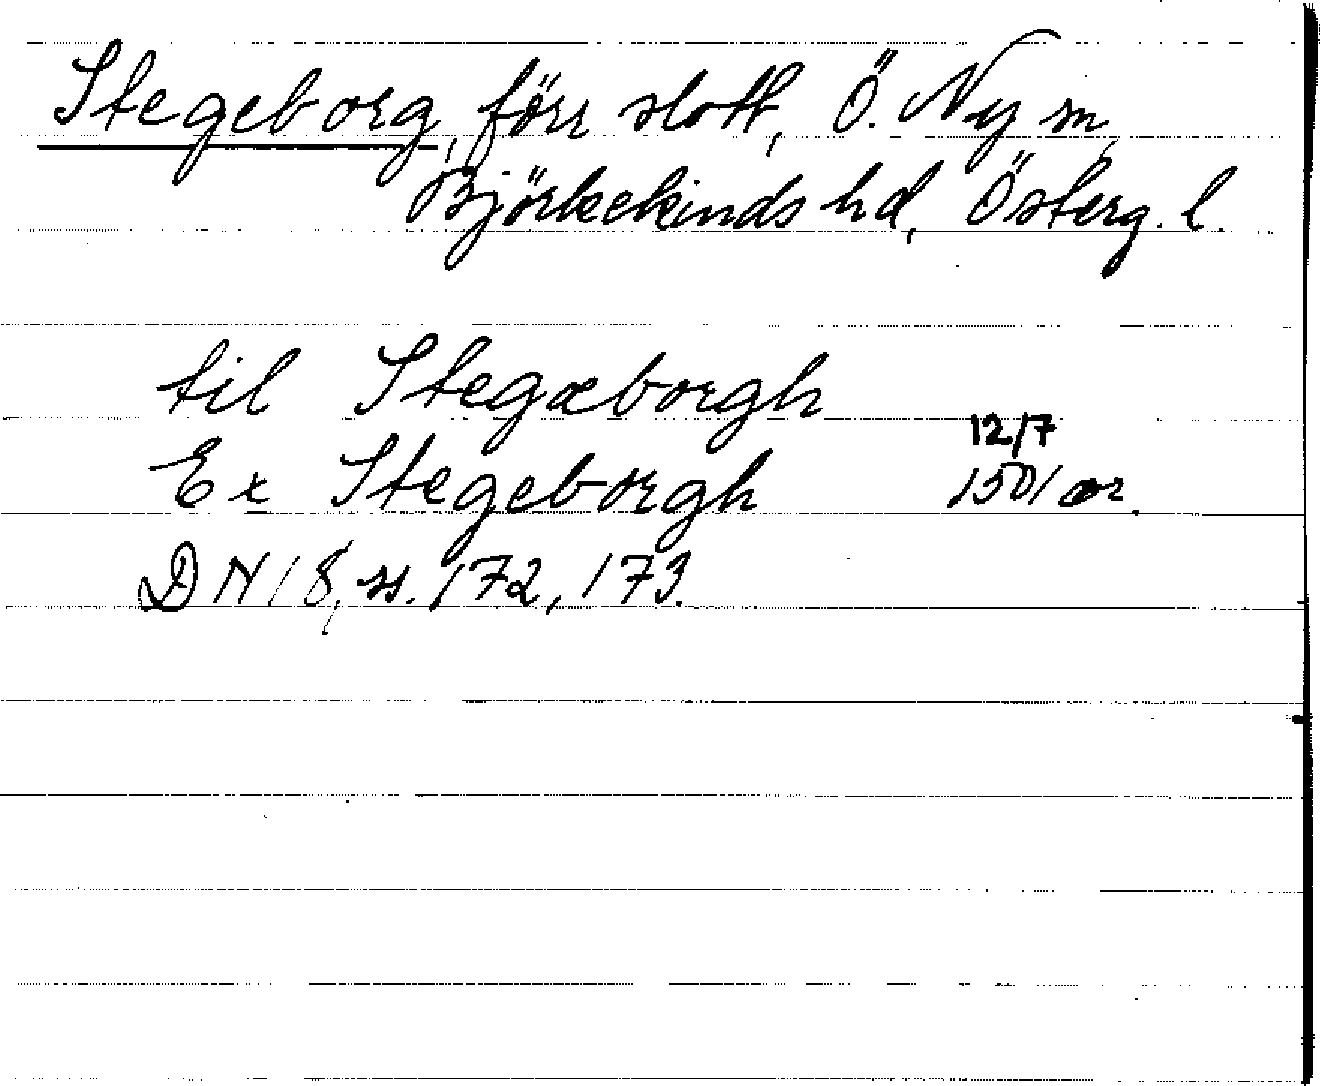 Stegeborg, förr slott, Ö. Ny sn,
Björkekinds hd, Österg. l.
til Stegæborgh
12/7
Ex Stegeborgh 1501 or.
DN 18, ss. 172, 173.